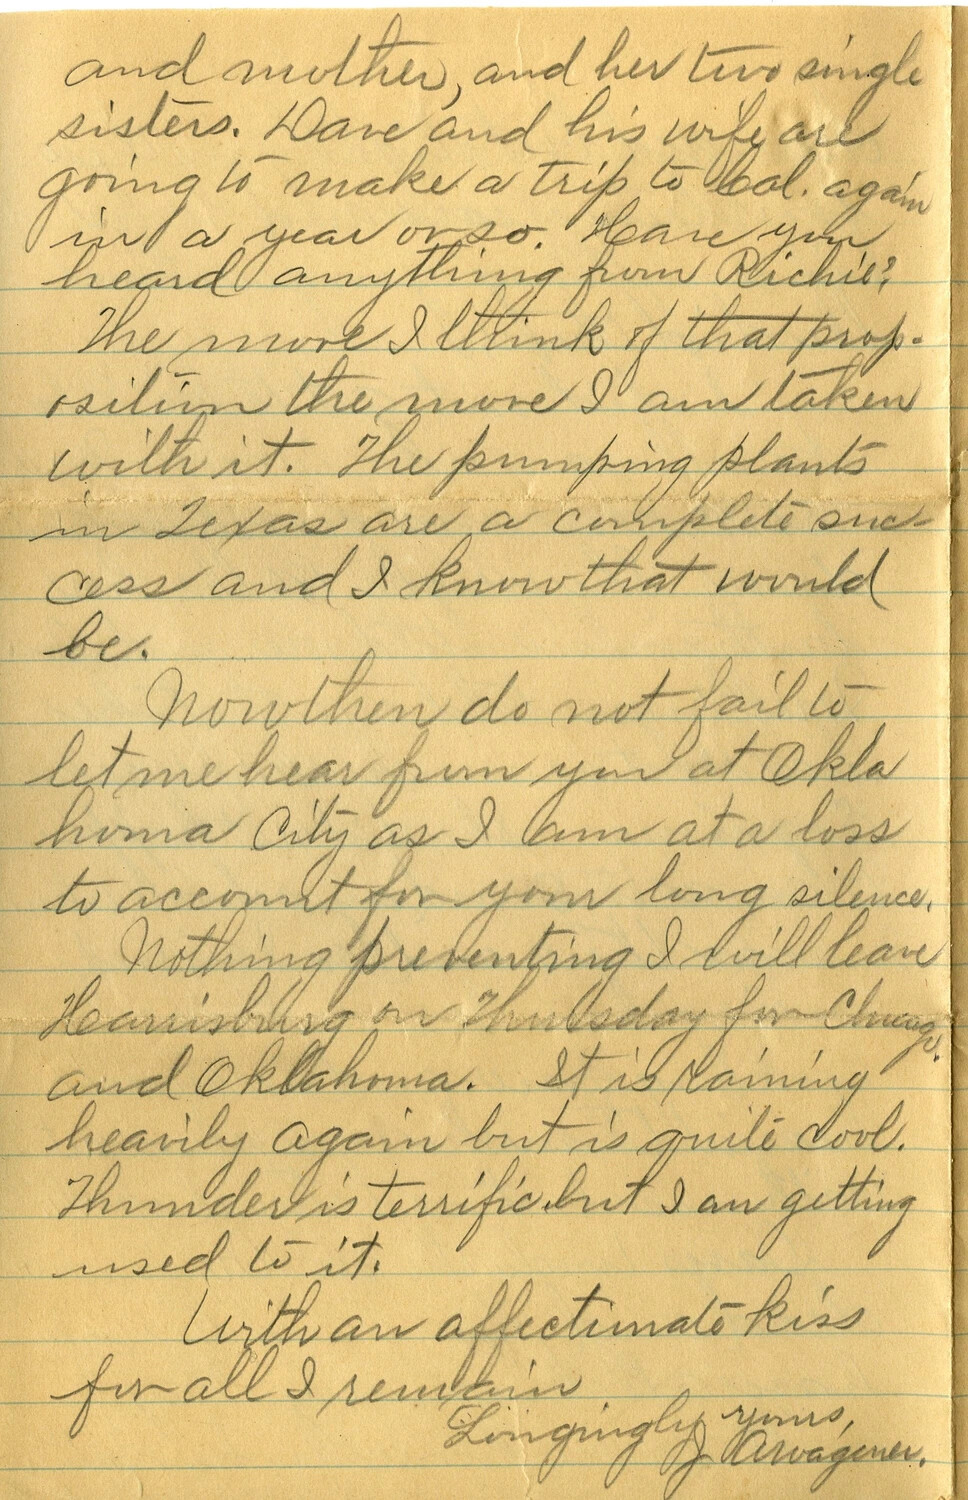 and mother, and her two single
sisters. Dave and his wife are
going to make a trip to Cal. again
in a year or so. Have you
heard anything from Richie?
The more I think of that prop-
osition the more I am taken
with it. The pumping plants
in Texas are a complete suc-
cess and I know that would
be.
Now then do not fail to
let me hear from you at Okla
homa City as I am at a loss
to account for your long silence.
Nothing preventing I will leave
Harrisburg on Thursday for Chicago.
and Oklahoma. It is raining
heavily again but is quite cool.
Thunder is terrific but I am getting
used to it.
With an affectionate kiss
for all I remain
Longingly yours,
J